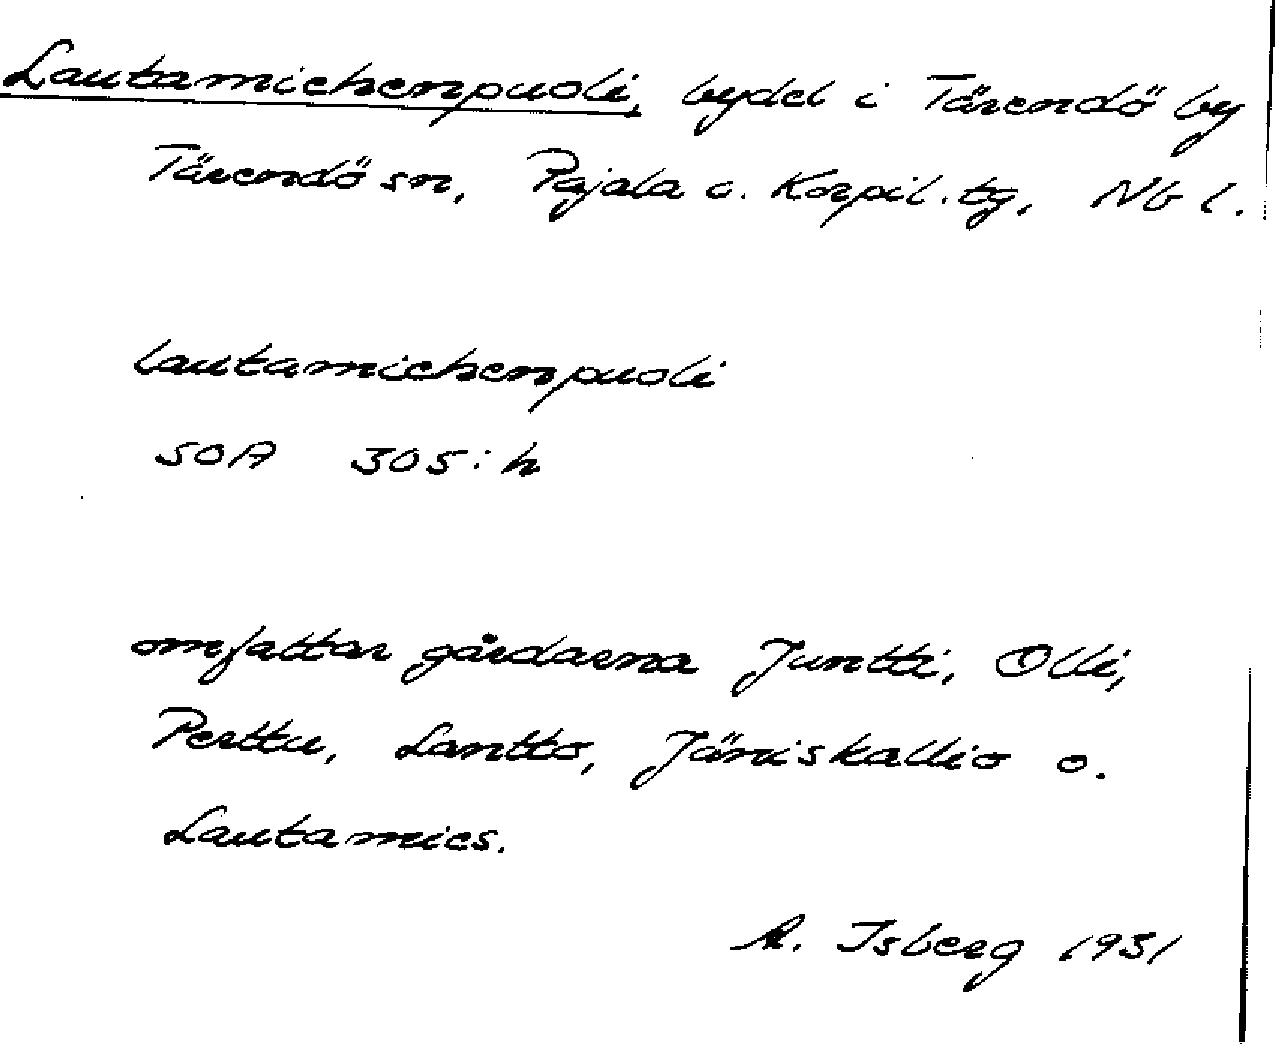 Lautamiehenpuoli, bydel i Tärendö by
Tärendö sn, Pajala o. Korpil. tg, Nb l.
lautamiehenpuoli
SOA 305:h
omfattar gårdarna Juntti, Olli,
Perttu, Lantto, Jäniskallio o.
Lautamies.
A. Isberg 1931